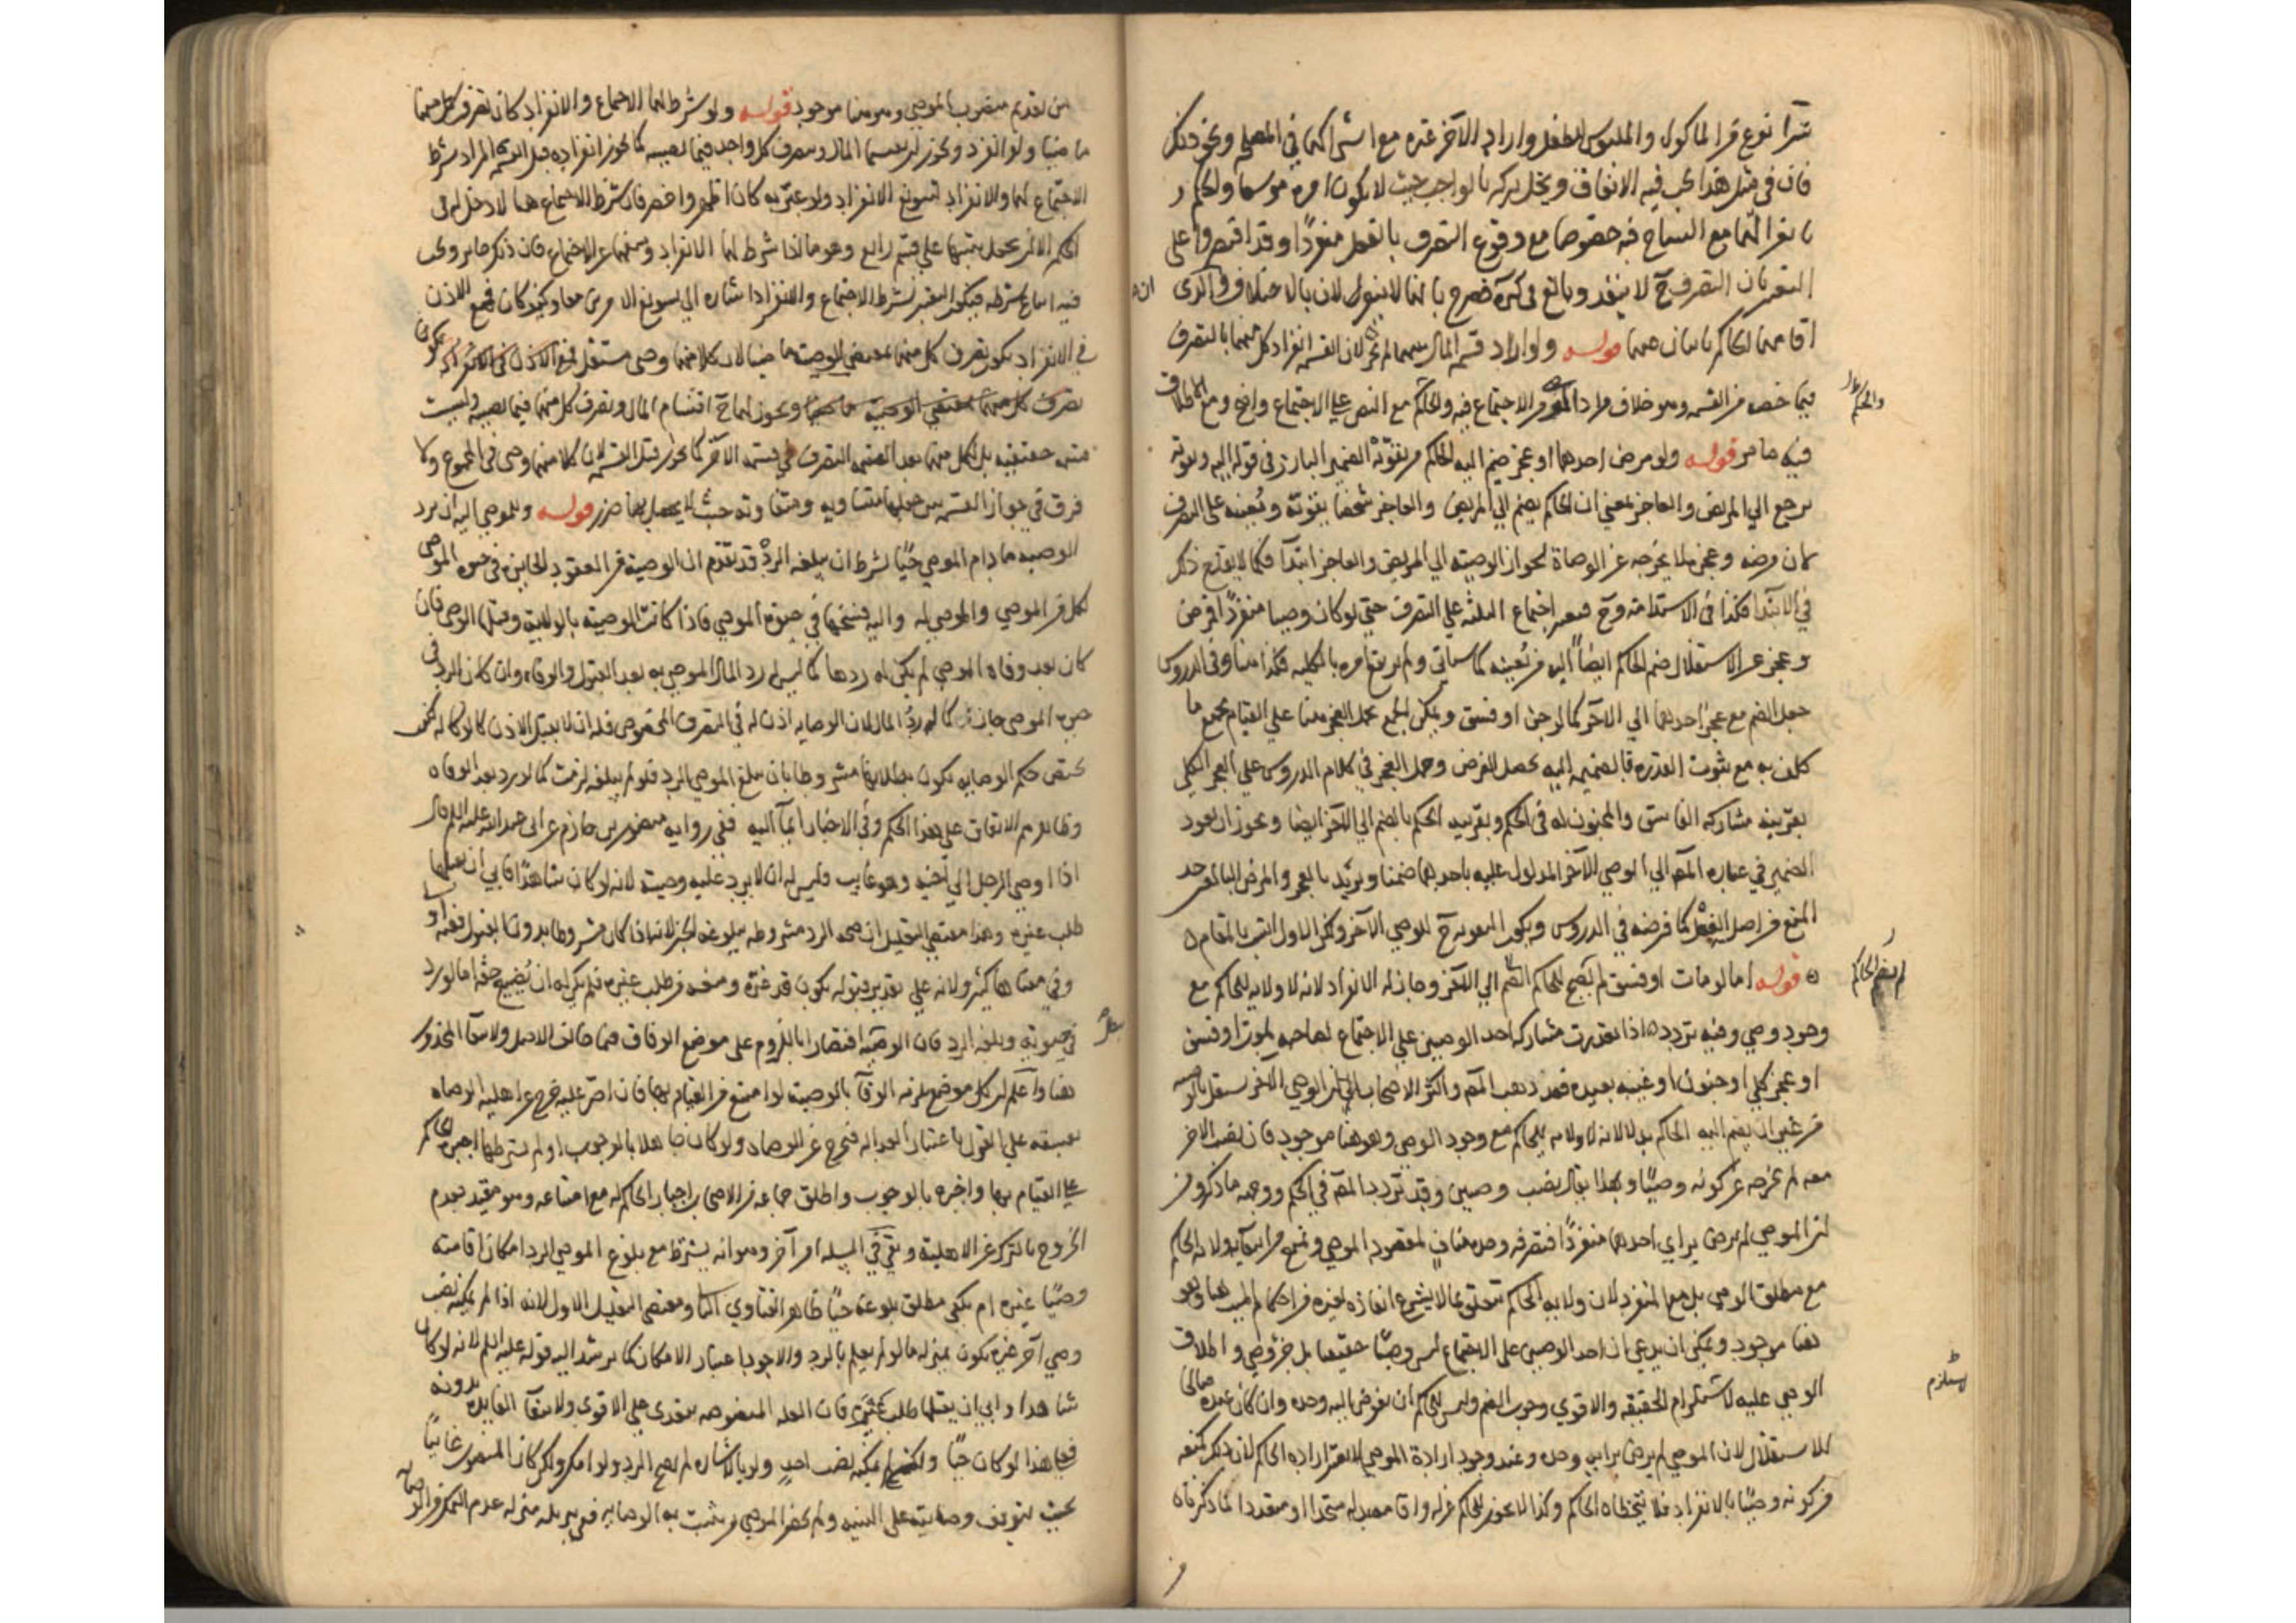 شرآ نوع من الماكول والملبوس للطفل واراد الآخر غيره مع اشتراكهما في المصلحة ونحو ذلك
فان في مثل هذا يجب فيه الاتفاق ويخل تركه بالواجب بحيث لا يكون امره موسعا والحكم
بانعزالهما مع التشاح فيه خصوصا مع وقوع التصرف بالفعل منفردًا وقد اقتصروا على
التعبير بان التصرف ح لا ينفذ وبالغ في كره فصرح بانهما لا ينعزلان بالاختلاف والذي
اقامهما الحاكم نائبان عنهما قوله ولو اراد قسمة المال بينهما لم يجز لان القسمة انفراد كل منهما بالتصرف
فيما خصه من القسمة وهو خلاف مراد الموصي من الاجتماع فيه والحكم مع النص على الاجتماع واضح ومع الاطلاق
فيه ما مر قوله ولو مرض احدهما او عجز ضم اليه الحاكم من يقوّيه الضمير البارز في قوله اليه ويقويه
يرجع الى المريض والعاجز بمعنى ان الحاكم يضم الى المريض والعاجز شخصًا يقوّيه ويُعينه على التصرف
كان مرضه وعجزه لا يخرجه عن الوصاة لجواز الوصية الى المريض والعاجز ابتدآ فكما لا يقدح ذلك
في الابتدآ فكذا في الاستدامة وح فيعتبر اجتماع الثلثة على التصرف حتى لو كان وصيا منفردًا فمرض
وعجز عن الاستقلال ضم الحاكم ايضًا اليه من يُعينه كما سياتي ولم يرتفع امره بالكلية فكذا هنا وفي الدروس
جعل الضم مع عجز احدهما الى الآخر كما لو جن او فسق ويمكن الجمع بحمل العجز هنا على القيام بجميع ما
كلف به مع ثبوت القدرة فبالضميمة اليه يحصل الغرض وحمل العجز في كلام الدروس على العجز الكلي
بقرينة مشاركة الفاسق والمجنون له في الحكم وبقرينة الحكم بالضم الى الآخر ايضا ويجوز ان يعود
الضمير في عبارة المصـ الى الوصي الآخر المدلول عليه باحدهما ضمنا ويريد بالعجز والمرض البالغين حد
المنع من اصل الفعل كما فرضه في الدروس ويكون المعونة ح للوصي الآخر ولكن الاول انسب بالمقام
قوله اما لو مات او فسق لم يضم الحاكم الى الآخر وجاز له الانفراد لانه لا ولاية للحاكم مع
وجود وصي وفيه تردد اذا تعذرت مشاركة احد الوصيين على الاجتماع لصاحبه بموت او فسق
او عجز كلي او جنون او غيبة بعيدة فقد ذهب المصـ واكثر الاصحاب الى ان الوصي الآخر يستقل بالوصية
من غير ان يضم اليه الحاكم بدلا لانه لا ولاية للحاكم مع وجود الوصي وهو هنا موجود فان نصب الاخر
معه لم يخرجه عن كونه وصيًا وبهذا يقال نصب وصيين وقد تردد المصـ في الحكم ووجهه ما ذكر ومن
ان الموصي لم يرض براي احدهما منفردًا فتصرفه وحده مناف لمقصود الموصي ونمنع من انتفآء ولاية الحاكم
مع مطلق الوصي بل مع المنفرد لان ولاية الحاكم تتعلق بما لا يشرع انفاذه لغيره
هنا موجود ويمكن ان يدعى ان احد الوصيين على الاجتماع ليس وصيًا حقيقيا بل جزؤ وصي واطلاق
الوصي عليه لا يستلزم الحقيقة والاقوى وجوب الضم وليس للحاكم ان يفوض اليه وحده وان كان عنده صالحا
للاستقلال لان الموصي لم يرض برايه وحده وعند وجود ارادة الموصي لا يعتبر اراده الحاكم
من كونه وصيًا بالانفراد فلا يتخطاه الحاكم وكذا لا يجوز للحاكم عزله واقامة بدله متحدا او متعددا لما ذكرناه
والحكم
لم يضم الحاكم
يستلزم
من تقديم منصوب الموصي وهو هنا موجود قوله ولو شرط لهما الاجتماع والانفراد كان تصرف كل منهما
ماضيًا ولو انفرد ويجوز ان يقتسما المال ويتصرف كل واحد فيما نصيبه كما يجوز انفراده قبل القسمة المراد بشرط
الاجتماع لهما والانفراد تسويغ الانفراد ولو عبّر به كان اظهر واخصر فان شرط الاجتماع هنا لا دخل له في
الحكم الا ان يحمل تنبيها على قسم رابع وهو ما اذا شرط لهما الانفراد ومنعهما عن الاجتماع فان ذكره جايز ويجب
فيه اتباع شرطه فيكون التعبير بشرط الاجتماع والانفراد اشاره الى تسويغ الامرين معا وكيف كان فمع الاذن
في الانفراد يكون تصرف كل منهما بمقتضى الوصية ماضيا لان كلا منهما وصي مستقل
ويجوز لهما ح اقتسام المال وتصرف كل منهما فيما نصيبه وليست
قسمة حقيقية بل لكل منهما بعد القسمة التصرف في قسمة الآخر كما يجوز قبل القسمة لان كلا منهما وصي في المجموع ولا
فرق في جواز القسمة بين جعلها متساوية ومتفاوتة حيث لا يحصل بها ضرر قوله وللموصى اليه ان يرد
الوصية ما دام الموصي حيًا بشرط ان يبلغه الردّ قد تقدّم ان الوصية من العقود الجايزة في حيوة الموصي
لكل من الموصي والموصى له واليه فسخها في حيوة الموصي فاذا كانت الوصية بالولاية وقبل الوصي فان
كان بعد وفاة الموصي لم يكن له ردها كما ليس له رد المال الموصى به بعد القبول والوفاه وان كان الرد في
حيوة الموصي جاز له كما له ردّ المال لان الوصاية اذن له في التصرف المخصوص فله ان لا يقبل الاذن كالوكالة لكن
يختص حكم الوصاية بكون بطلانها مشروطا بان يبلغ الموصي الرد فلو لم يبلغه لزمت كما لو رد بعد الوفاه
وظاهرهم الاتفاق على هذا الحكم وفي الاخبار ايمآ اليه ففي رواية منصور بن حازم عن ابي عبد الله عليه السلم قال
اذا اوصى الرجل الى اخيه وهو غايب فليس له ان لا يرد عليه وصيته لانه لو كان شاهدًا فابى ان يقبلها
طلب غيره وهذا مقتضى التعليل ان صحة الرد مشروطة ببلوغه الخبر
وفي معناها كثير ولانه على تقدير قبوله يكون قد غرّه ومنعه من طلب غيره فلم يكن له ان يُضيع حقه اما لو رد
في حيوته وبلغه الرد فان الوصية اقتصارا باللزوم على موضع الوفاق فيما خالف الاصل ولانتفآ المحذور
هنا واعلم ان كل موضع يلزمه الوفآ بالوصية لو امتنع من القيام بها فان اصرّ عليه خرج عن اهلية الوصاه
بفسقه على القول باعتبار العدالة فيخرج عن الوصاه ولو كان جاهلا بالوجوب او لم نشترطها اجبره الحاكم
على القيام بها واخبره بالوجوب واطلق جماعة من الاصحاب اجبار الحاكم له مع امتناعه وهو مقيد بعدم
الخروج بالترك عن الاهلية وبقي في المسئلة امر آخر وهو انه يشترط مع بلوغ الموصي الرد امكان اقامته
وصيًا غيره ام يكفي مطلق بلوغه حيًا ظاهر الفتاوى الثاني ومقتضى التعليل الاول لانه اذا لم يمكنه نصب
وصي آخر غيره يكون بمنزلة ما لو لم يعلم بالرد والاجود اعتبار الامكان كما يرشد اليه قوله عليه السلم لانه لو كان
شاهدا وابى ان يقبلها طلب غيره فان العلة المنصوصة يتعدى على الاقوى ولانتفآ الفايدة بدونه
فعلى هذا لو كان حيًا ولكن لم يمكنه نصب احدٍ ولو بالاشاره لم يصح الرد ولو امكن ولكن كان المنصوب غايبًا
بحيث يتوقف وصايته على البينة ولم يحضر الموصي من يثبت به الوصاية ففي تنزيله منزلة عدم التمكن من الوصاية